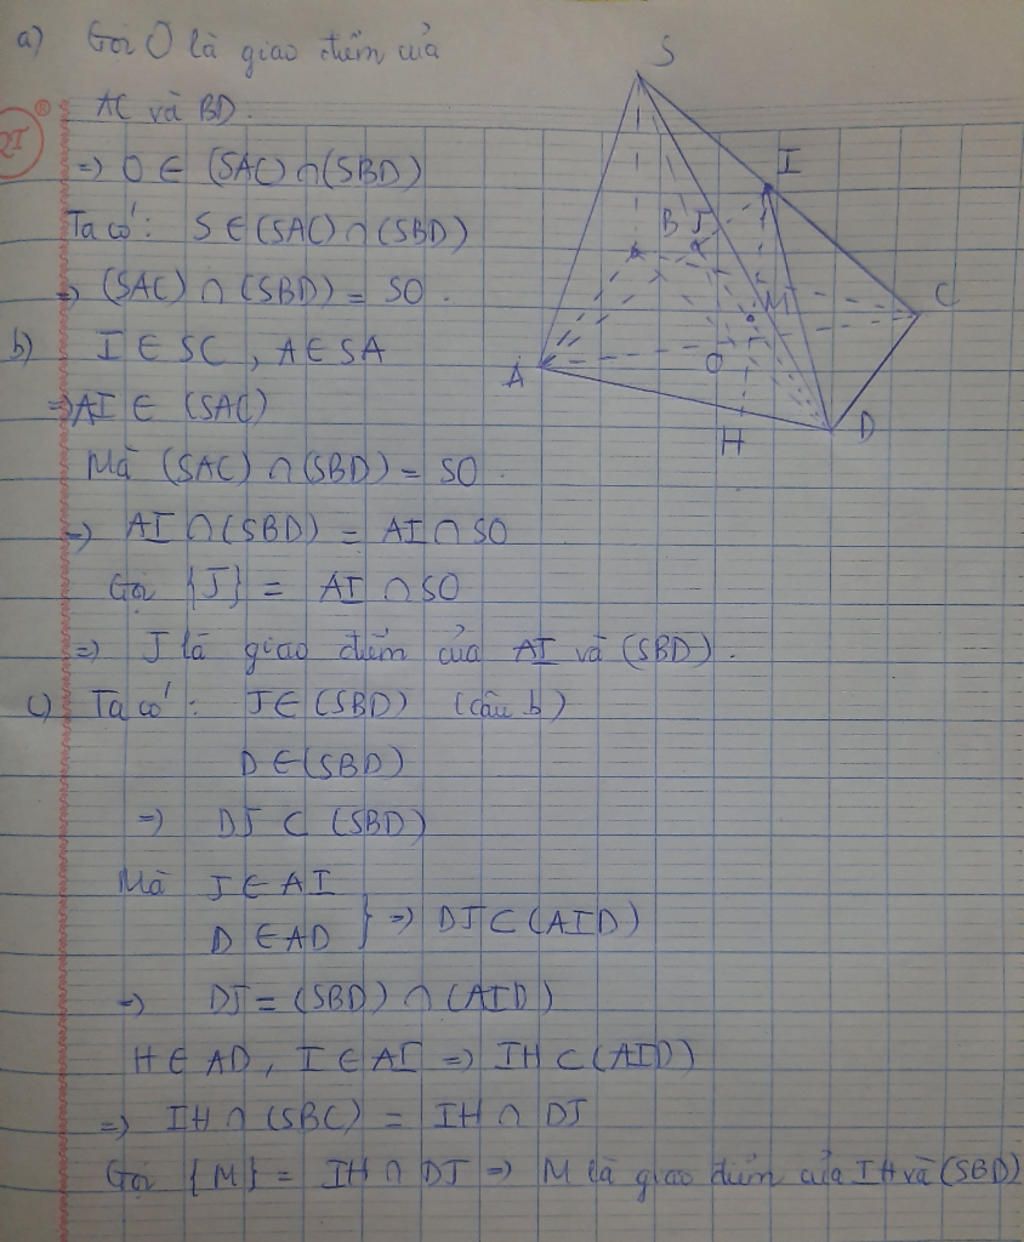 a) Gọi O là giao điểm của
AC và BD.
=> O ∈ (SAC) ∩ (SBD)
Ta có: S ∈ (SAC) ∩ (SBD)
=> (SAC) ∩ (SBD) = SO.
b) I ∈ SC, A ∈ SA
=> AI ∈ (SAC)
Mà (SAC) ∩ (SBD) = SO.
=> AI ∩ (SBD) = AI ∩ SO
Gọi {J} = AI ∩ SO
=> J là giao điểm của AI và (SBD).
c) Ta có: J ∈ (SBD) (câu b)
D ∈ (SBD)
=> DJ ⊂ (SBD)
Mà J ∈ AI
D ∈ AD } => DJ ⊂ (AID)
=> DJ = (SBD) ∩ (AID)
H ∈ AD, I ∈ AI => IH ⊂ (AID)
=> IH ∩ (SBC) = IH ∩ DJ
Gọi {M} = IH ∩ DJ => M là giao điểm của IH và (SBD)
S
I
B J
M
C
A
O
H
D